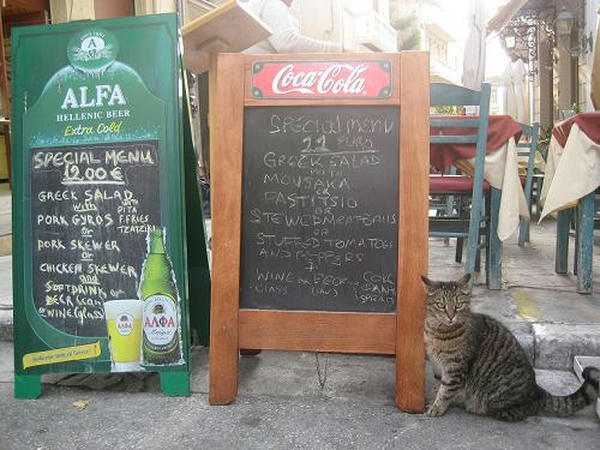 ALFA
HELLENIC BEER
Extra Cold
SPECIAL MENU
12.00 €
GREEK SALAD
with
PORK GYROS PITA
or FFRIES
TZATZIKI
PORK SKEWER
or
CHICKEN SKEWER
and
SOFTDRINK or
BEER (can)
WINE (glass)
ΑΛΦΑ
ΑΛΦΑ
Coca-Cola
SPECIAL MENU
11 EURO
GREEK SALAD
WITH
MOUSAKA
OR
PASTITSIO
OR
STEWED MEATBALLS
OR
STUFFED TOMATOES
AND PEPPERS
WINE OR BEER OR COKE
GLASS